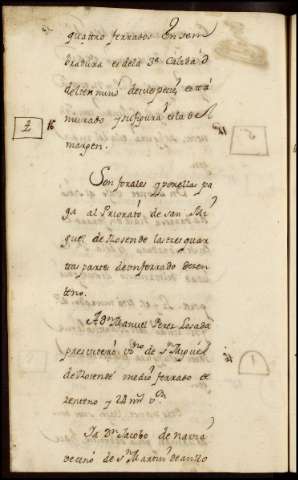 quattro ferrados En sem
bradura es dela 3ª Calidad
del termino desu especie esta
murado y su figura es la de el
margen.
2
Son forales y por ellas pa
ga al Priorato de San Mi
guel de Rosende las tres quar
tas partes de un ferrado de zen
teno.
A Dn Manuel Perez Losada
presvitero Vzno de Sn Miguel
de Rosende medio ferrado de
zenteno y 24 mrs Vn
Ya Dn Jacobo de navia
vecino de Sn Martin de